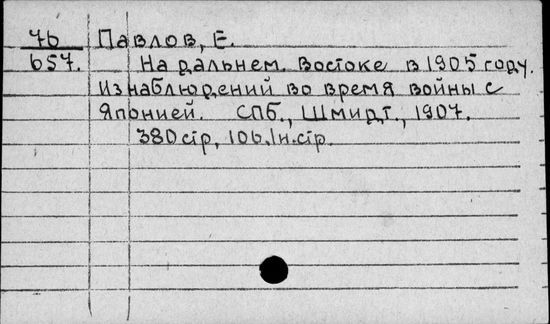 76 Павлов, Е.
657. На дальнем. Востоке в 1905 году.
Из наблюдений во время войны с
Японией. СПб., Шмидт., 1907.
380 стр, 10б./н.стр.